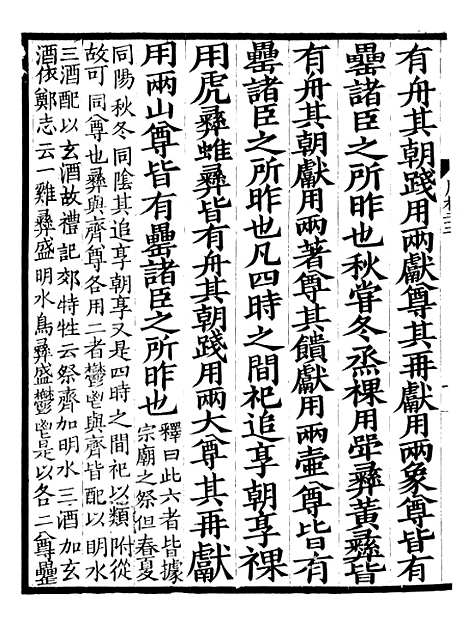 有舟其朝踐用兩獻尊其再獻用兩象尊皆有
罍諸臣之所昨也秋嘗冬烝祼用斝彝黃彝皆
有舟其朝獻用兩著尊其饋獻用兩壺尊皆有
罍諸臣之所昨也凡四時之間祀追享朝享祼
用虎彝蜼彝皆有舟其朝踐用兩大尊其再獻
用兩山尊皆有罍諸臣之所昨也
釋曰此六者皆據
宗廟之祭但春夏
同陽秋冬同陰其追享朝享又是四時之間祀以類附從
故可同尊也彝與齊尊各用二者鬱鬯與齊皆配以明水
三酒配以玄酒故禮記郊特牲云祭齊加明水三酒加玄
酒依鄭志云一雞彝盛明水鳥彝盛鬱鬯是以各二尊罍